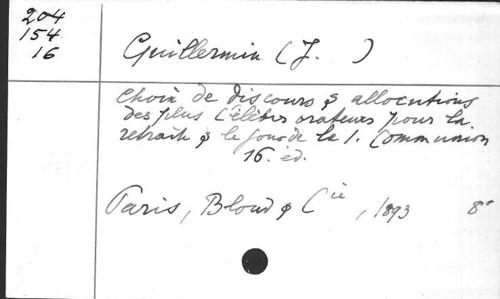 204
154
16
Guillermin (J. )
Choix de discours & allocutions
des plus célèbres orateurs pour la
retraite & le jour de la 1. Communion
16. éd.
Paris, Bloud & Cie, 1893 8°